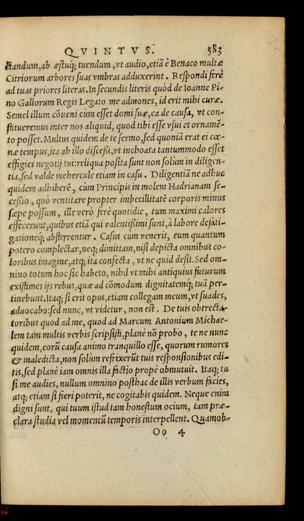 QVINTVS. 583
ctandum, ab æstuq; tuendum, vt audio, etiā è Benaco multæ
Citriorum arbores suas vmbras adduxerint. Respondi ferè
ad tuas priores literas. In secundis literis quòd de Ioanne Pi-
no Gallorum Regis Legato me admones, id erit mihi curæ.
Semel illum cōueni cùm esset domi suæ, ea de causa, vt con-
stitueremus inter nos aliquid, quod tibi esse vsui et ornamē-
to posset. Multus quidem de te sermo, sed quoniā erat ei cœ-
næ tempus, ita ab illo discessi, vt inchoata tantummodo esset
effigies negotij tui: reliqua posita sunt non solùm in diligen-
tia, sed valde mehercule etiam in casu. Diligentiā ne adhuc
quidem adhiberē, cùm Principis in molem Hadrianam se-
cessio, quò ventitare propter imbecillitatē corporis minus
sæpe possum, ille verò ferè quotidie, tum maximi calores
effecerunt, quibus etiā qui valentissimi sunt, à labore defati-
gationeq; absterrentur. Casus cùm venerit, eum quantum
potero complectar, neq; dimittam, nisi depicta omnibus co-
loribus imagine, atq; ita confecta, vt ne quid desit. Sed om-
nino totum hoc sic habeto, nihil vt mihi antiquius futurum
existimes ijs rebus, quæ ad cōmodum dignitatemq; tuā per-
tinebunt. Itaq; si erit opus, etiam collegam meum, vt suades,
aduocabo: sed nunc, vt videtur, non est. De tuis obtrecta-
toribus quod ad me, quod ad Marcum Antonium Michae-
lem tam multis verbis scripsisti, planè nō probo, te ne nunc
quidem, eorū causa animo tranquillo esse, quorum rumores
& maledicta, non solùm refrixerūt tuis responsionibus edi-
tis, sed planè iam omnis illa fictio propè obmutuit. Itaq; tu
si me audies, nullum omnino posthac de illis verbum facies,
atq; etiam si fieri poterit, ne cogitabis quidem. Neque enim
digni sunt, qui tuum istud tam honestum ocium, tam præ-
clara studia vel momentū temporis interpellent. Quamob-
Oo 4